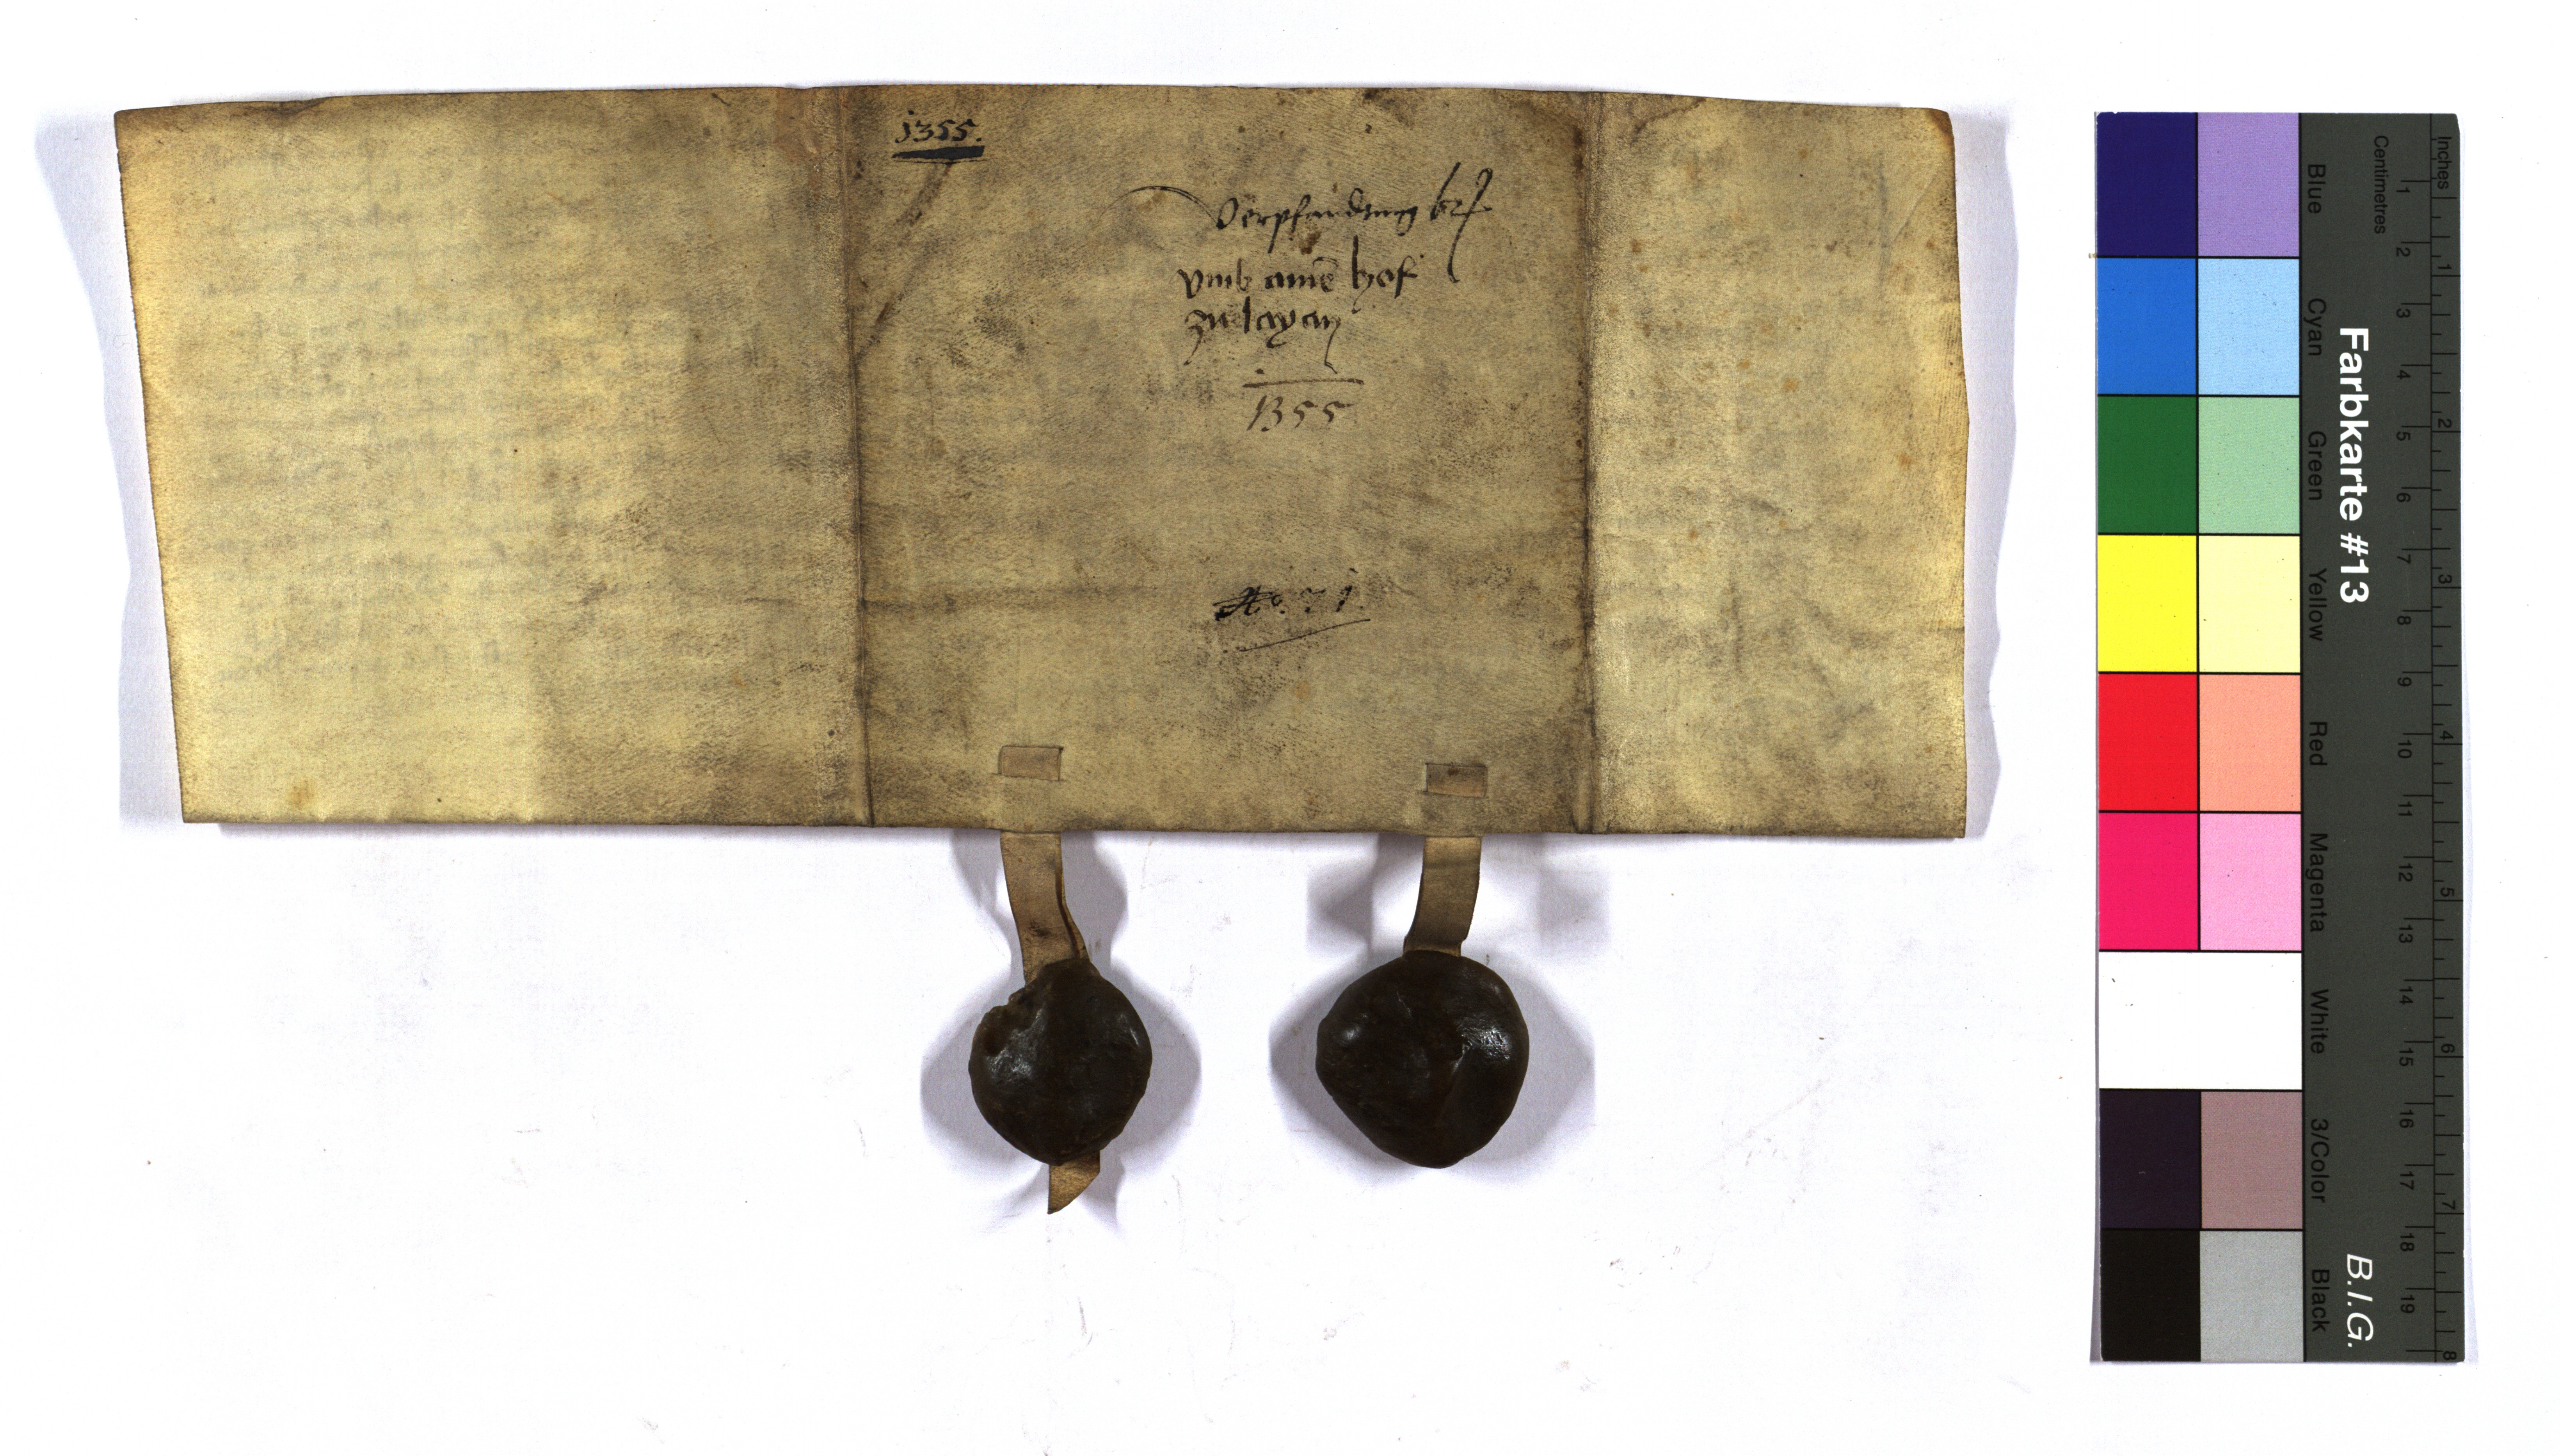 1355.
Verpfandung brf
vmb ainē hof
zu layan
1355
No. 71.
Farbkarte #13
B.I.G.
Blue
Cyan
Green
Yellow
Red
Magenta
White
3/Color
Black
Centimetres
1 2 3 4 5 6 7 8 9 10 11 12 13 14 15 16 17 18 19
Inches
1 2 3 4 5 6 7 8